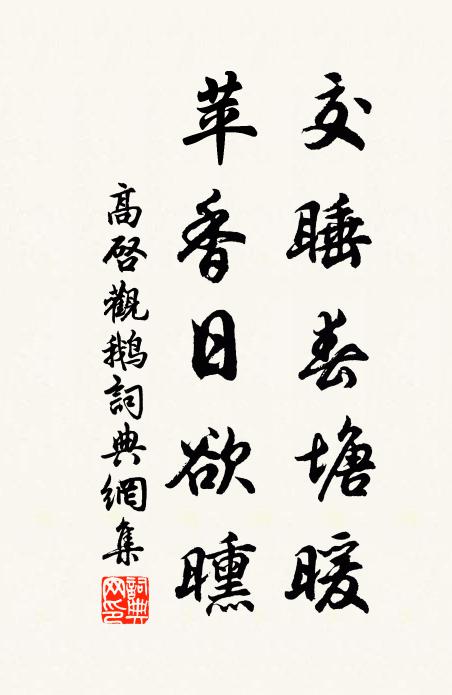 交睡春塘暖
苹香日欲曛
高啓觀鵝詞典網集
詞典網印